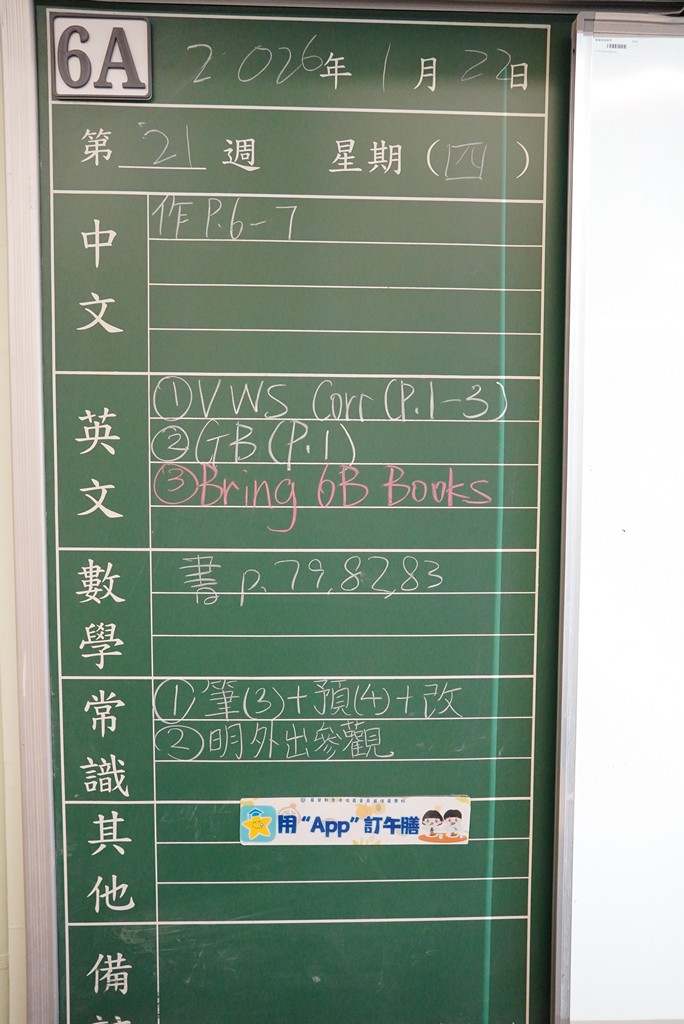 6A
2026年1月22日
第21週 星期（四）
中文
作 P.6-7
英文
①VWS Corr (P.1-3)
②GB (P.1)
③Bring 6B Books
數學
書 p.79,82,83
常識
①筆(3)+預(4)+改
②明外出參觀
其他
用“App”訂午膳
備